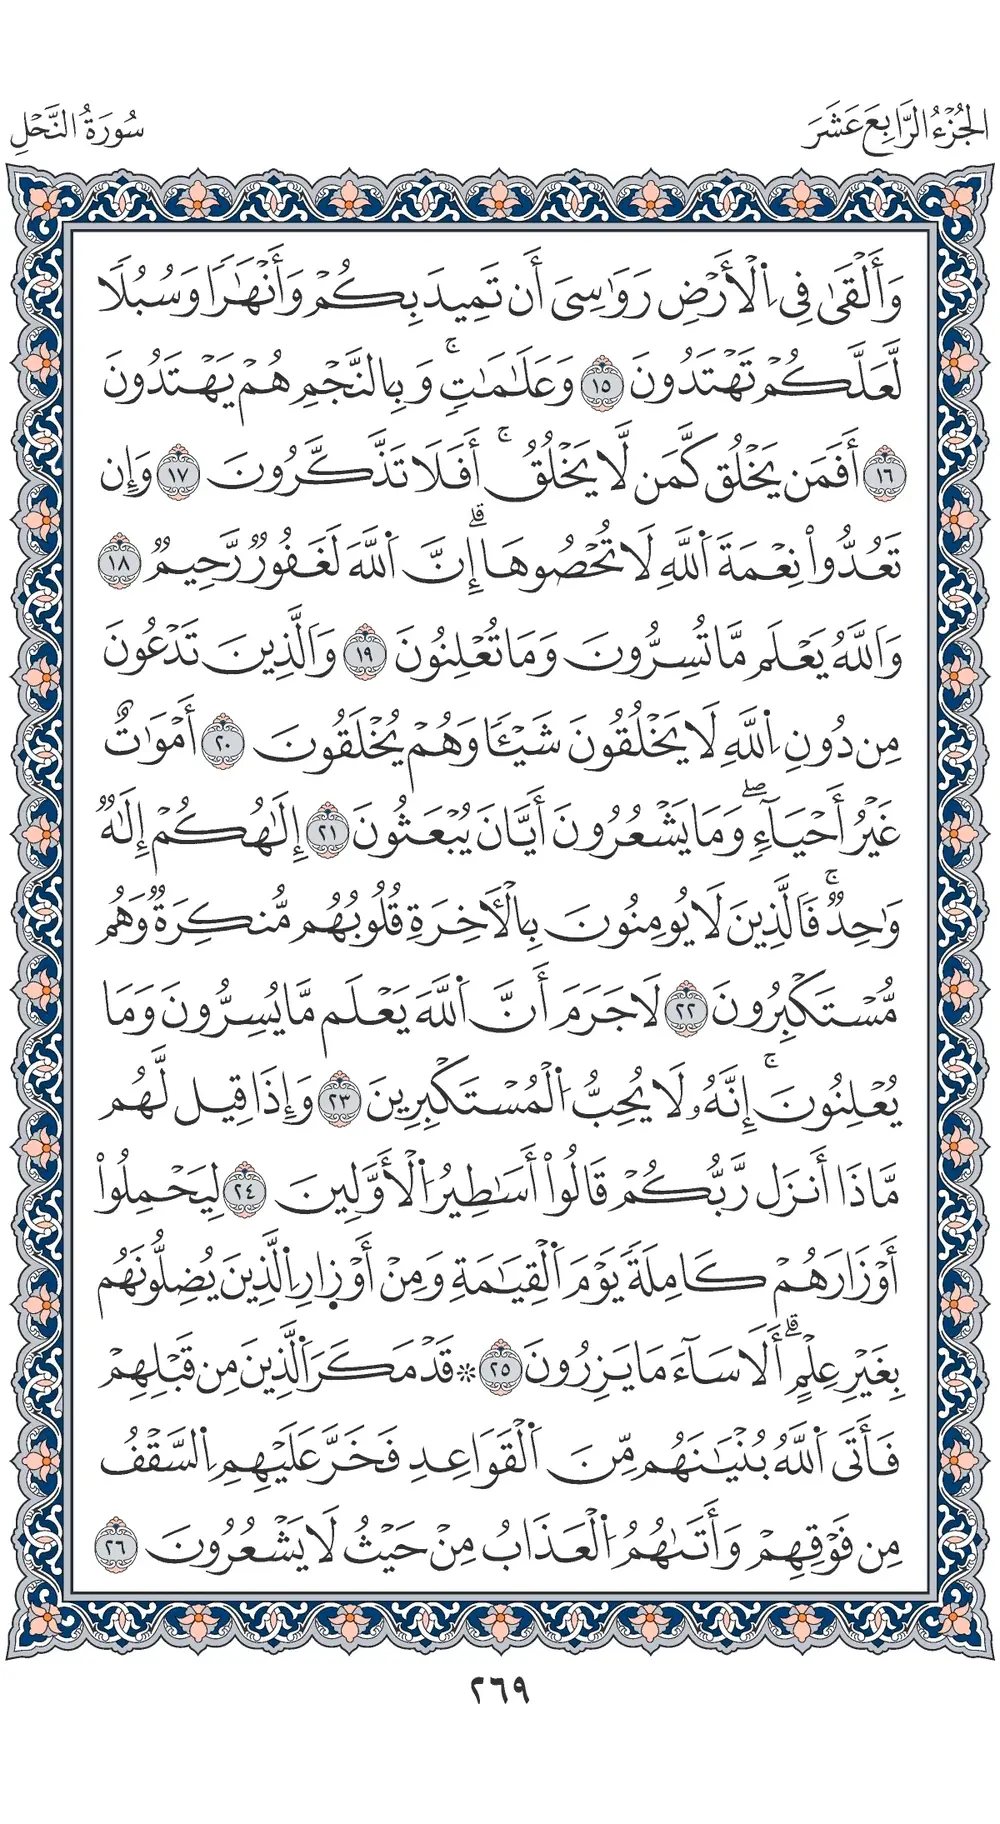 الجُزْءُ الرَّابِعَ عَشَرَ
سُورَةُ النَّحْلِ
وَأَلْقَىٰ فِي اِ۬لْأَرْضِ رَوَٰسِيَ أَن تَمِيدَ بِكُمْ وَأَنْهَٰرًا وَسُبُلًا
لَّعَلَّكُمْ تَهْتَدُونَ ١٥ وَعَلَٰمَٰتٍۚ وَبِالنَّجْمِ هُمْ يَهْتَدُونَ
١٦ أَفَمَن يَخْلُق كَّمَن لَّا يَخْلُقُۚ أَفَلَا تَذَّكَّرُونَ ١٧ وَإِن
تَعُدُّواْ نِعْمَةَ اَ۬للَّهِ لَا تُحْصُوهَاۗ إِنَّ اَ۬للَّهَ لَغَفُورٌ رَّحِيمٌ ١٨
وَاَللَّهُ يَعْلَم مَّا تُسِرُّونَ وَمَا تُعْلِنُونَ ١٩ وَالَّذِينَ تَدْعُونَ
مِن دُونِ اِ۬للَّهِ لَا يَخْلُقُونَ شَيْـًٔا وَهُمْ يُخْلَقُونَ ٢٠ أَمْوَٰتٌ
غَيْرُ أَحْيَآءٍۖ وَمَا يَشْعُرُونَ أَيَّانَ يُبْعَثُونَ ٢١ إِلَٰهُكُمْ إِلَٰهٌ
وَٰحِدٌۚ فَالَّذِينَ لَا يُومِنُونَ بِالْأٓخِرَةِ قُلُوبُهُم مُّنكِرَةٌ وَهُم
مُّسْتَكْبِرُونَ ٢٢ لَا جَرَمَ أَنَّ اَ۬للَّهَ يَعْلَم مَّا يُسِرُّونَ وَمَا
يُعْلِنُونَۚ إِنَّهُۥ لَا يُحِبُّ اُ۬لْمُسْتَكْبِرِينَ ٢٣ وَإِذَا قِيل لَّهُم
مَّاذَا أَنزَل رَّبُّكُمْ قَالُواْ أَسَٰطِيرُ اُ۬لْأَوَّلِينَ ٢٤ لِيَحْمِلُواْ
أَوْزَارَهُمْ كَامِلَةً يَوْمَ اَ۬لْقِيَٰمَةِ وَمِنْ أَوْزِارِ اِ۬لَّذِينَ يُضِلُّونَهُم
بِغَيْرِ عِلْمٍۗ أَلَا سَآءَ مَا يَزِرُونَ ٢٥ ۞ قَدْ مَكَرَ اَ۬لَّذِينَ مِن قَبْلِهِمْ
فَأَتَى اَ۬للَّهُ بُنْيَٰنَهُم مِّنَ اَ۬لْقَوَاعِدِ فَخَرَّ عَلَيْهِمِ اِ۬لسَّقْفُ
مِن فَوْقِهِمْ وَأَتَىٰهُمُ اُ۬لْعَذَابُ مِنْ حَيْثُ لَا يَشْعُرُونَ ٢٦
٢٦٩